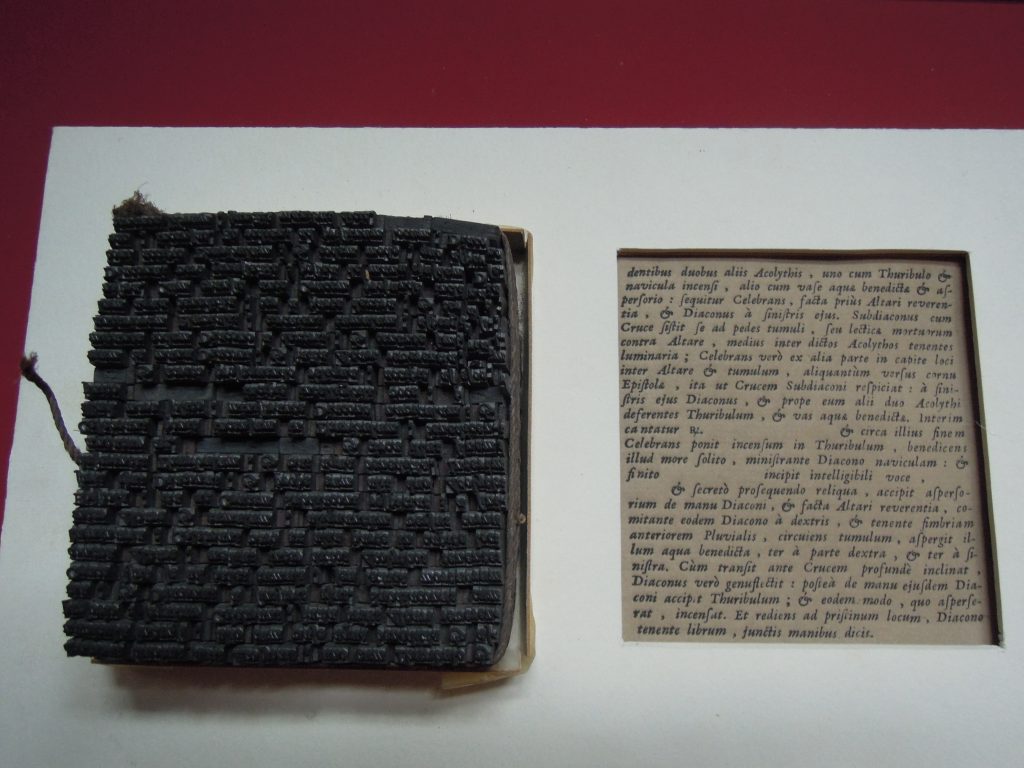 dentibus duobus aliis Acolythis , uno cum Thuribulo &
navicula incensi , alio cum vase aquæ benedictæ & as-
persorio : sequitur Celebrans , facta priùs Altari reveren-
tia , & Diaconus à sinistris ejus. Subdiaconus cum
Cruce sistit se ad pedes tumuli , seu lecticæ mortuorum
contra Altare , medius inter dictos Acolythos tenentes
luminaria ; Celebrans verò ex alia parte in capite loci
inter Altare & tumulum , aliquantùm versus cornu
Epistolæ , ita ut Crucem Subdiaconi respiciat : à sini-
stris ejus Diaconus , & prope eum alii duo Acolythi
deferentes Thuribulum , & vas aquæ benedictæ. Interim
cantatur ℞. & circa illius finem
Celebrans ponit incensum in Thuribulum , benedicens
illud more solito , ministrante Diacono naviculam : &
finito incipit intelligibili voce ,
& secretò prosequendo reliqua , accipit asperso-
rium de manu Diaconi, & facta Altari reverentia , co-
mitante eodem Diacono à dextris , & tenente fimbriam
anteriorem Pluvialis , circuiens tumulum , aspergit il-
lum aqua benedicta , ter à parte dextra , & ter à si-
nistra. Cùm transit ante Crucem profundè inclinat ,
Diaconus verò genuflectit : posteà de manu ejusdem Dia-
coni accipit Thuribulum ; & eodem modo , quo asperse-
rat , incensat. Et rediens ad pristinum locum , Diacono
tenente librum , junctis manibus dicit.